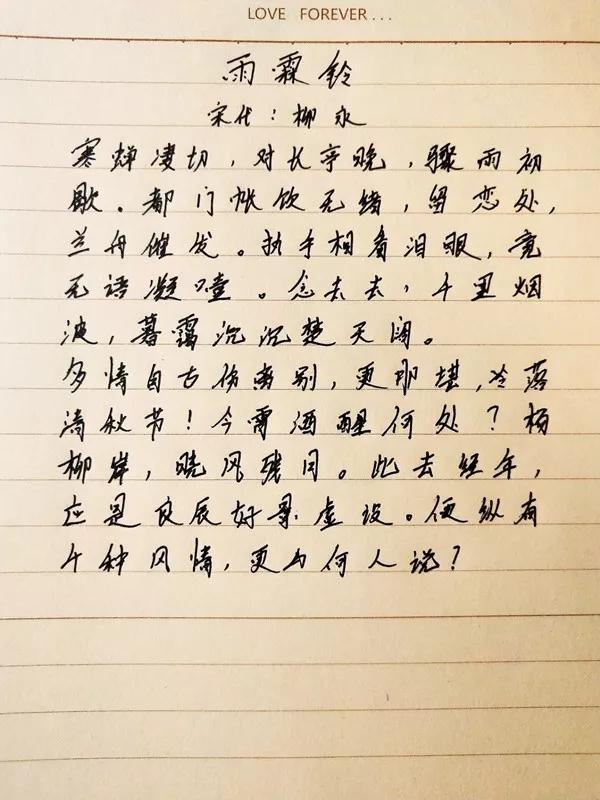 LOVE FOREVER...
雨霖铃
宋代：柳永
寒蝉凄切，对长亭晚，骤雨初
歇。都门帐饮无绪，留恋处，
兰舟催发。执手相看泪眼，竟
无语凝噎。念去去，千里烟
波，暮霭沉沉楚天阔。
多情自古伤离别，更那堪，冷落
清秋节！今宵酒醒何处？杨
柳岸，晓风残月。此去经年，
应是良辰好景虚设。便纵有
千种风情，更与何人说？